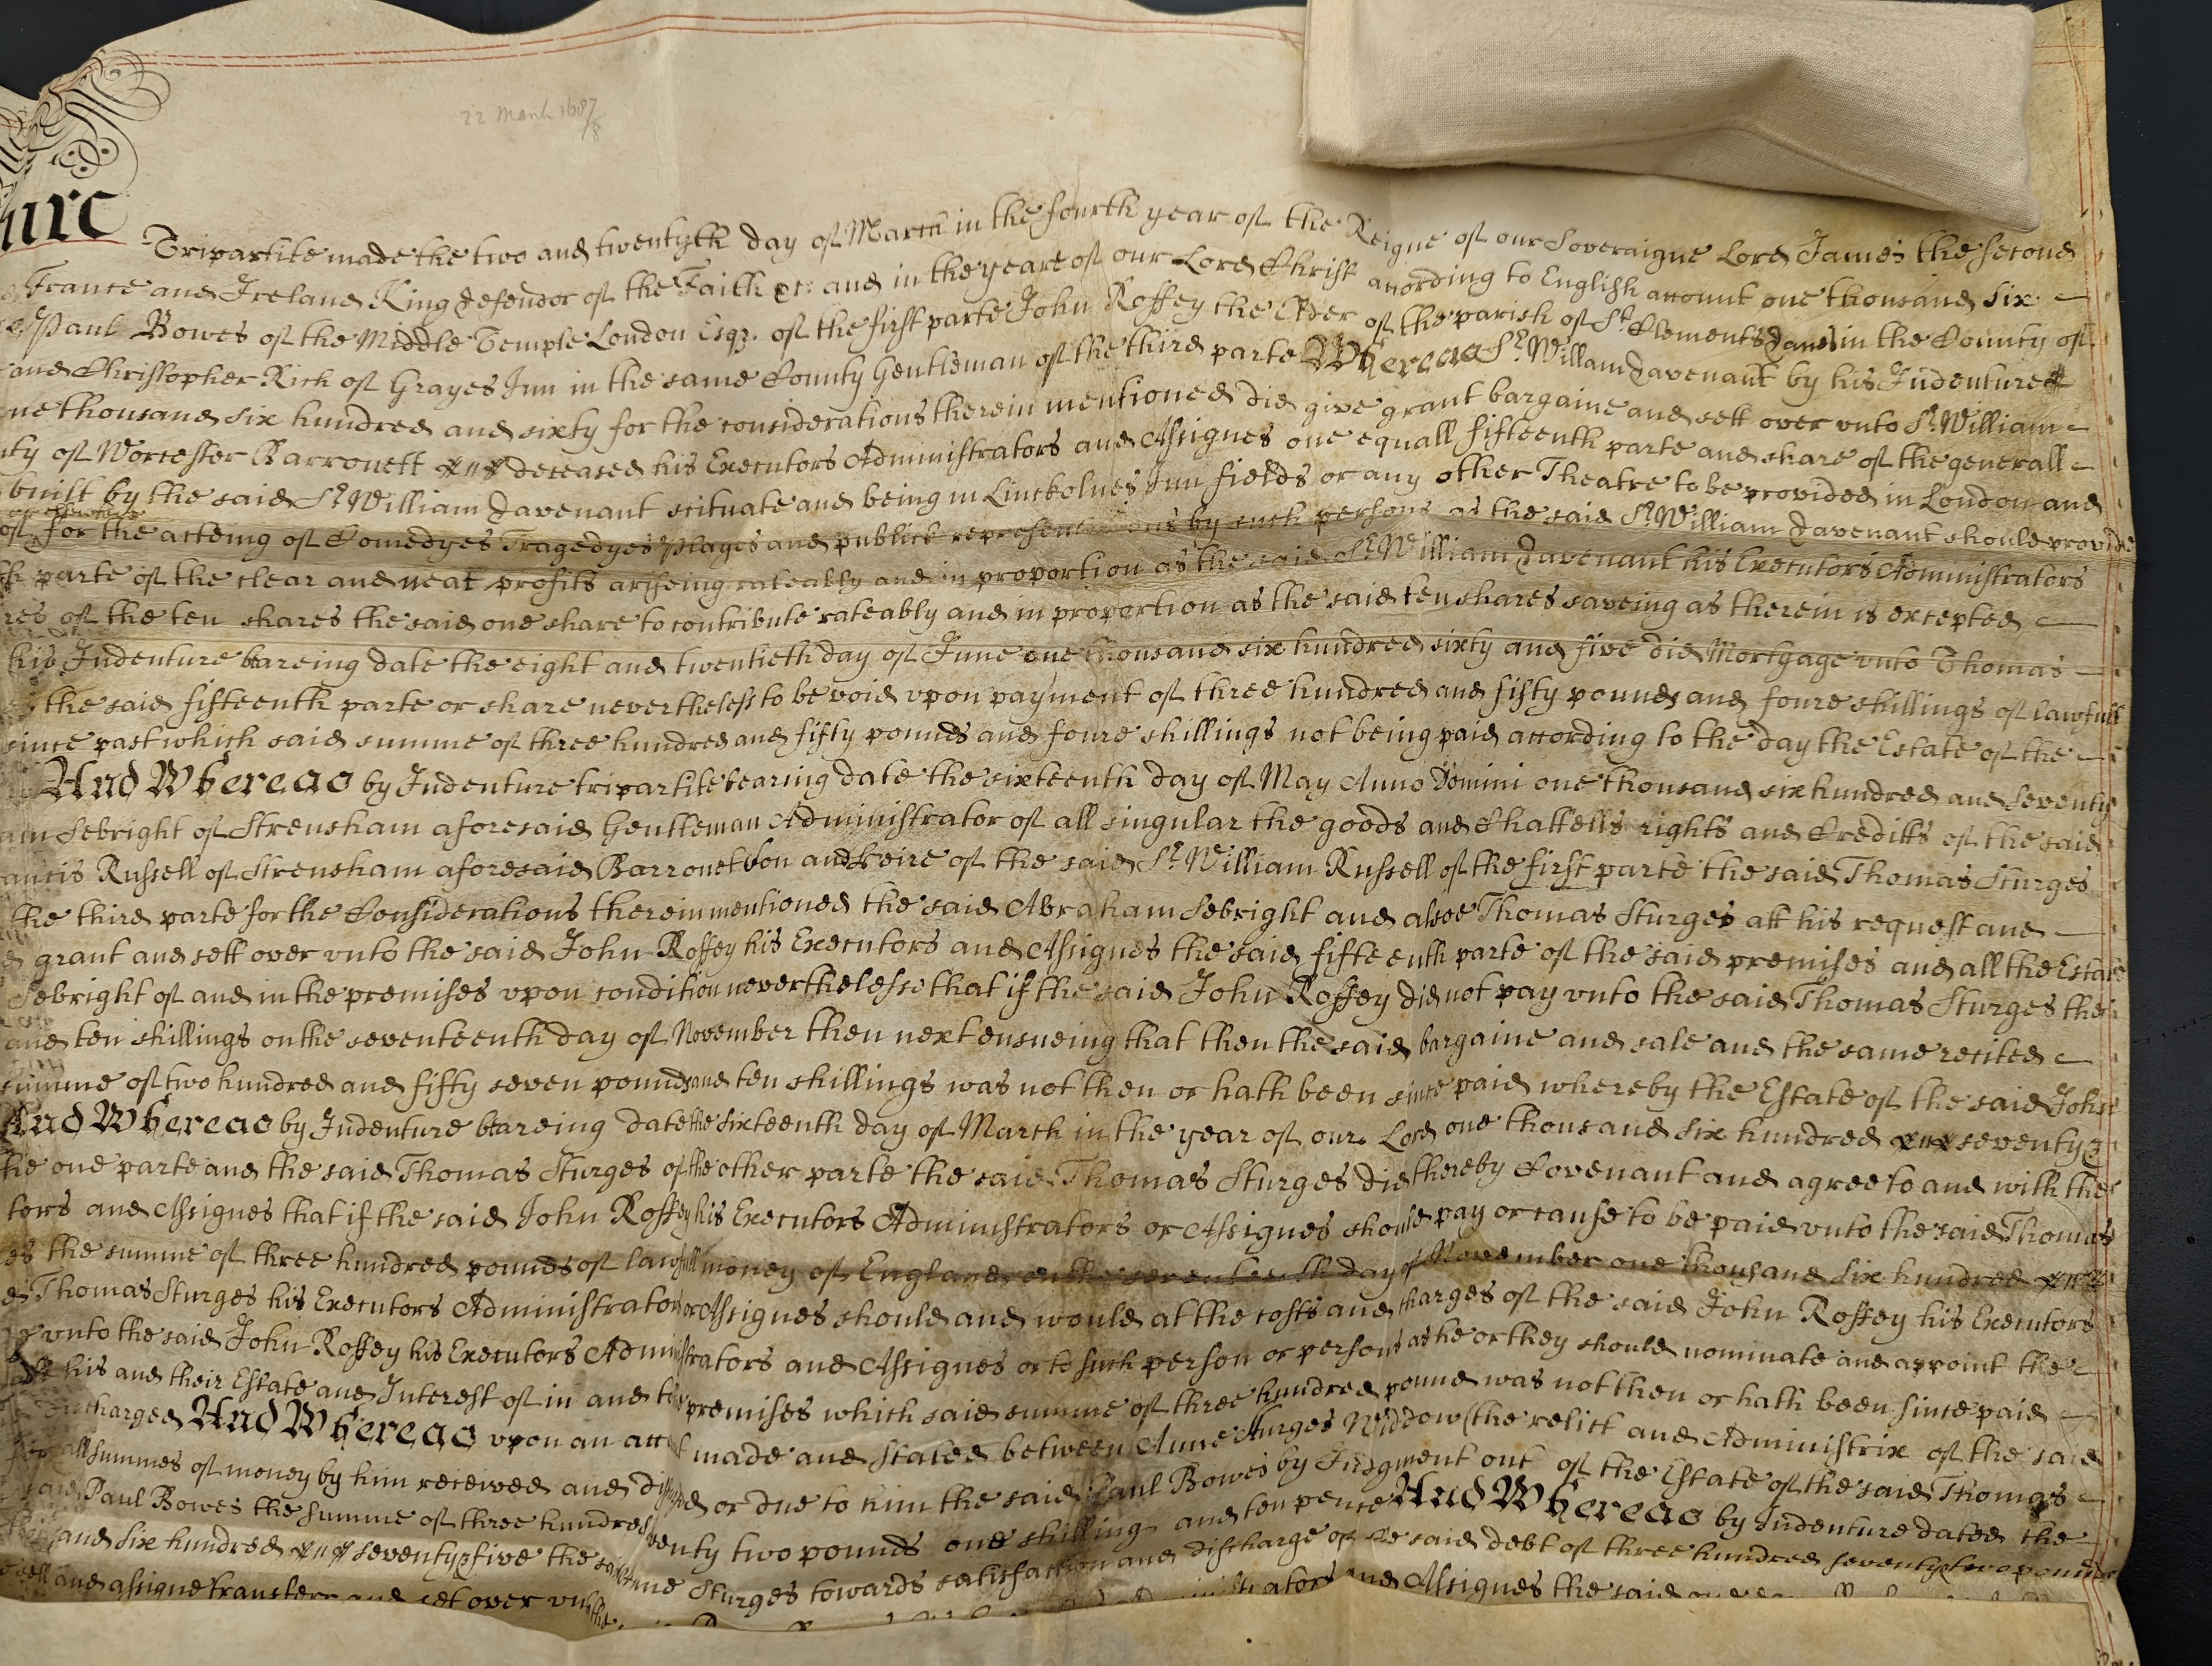 22 March 1687/8
Tripartite made the two and twentyth day of March in the fourth year of the Reigne of our Soveraigne Lord James the second
France and Ireland King defendor of the Faith &c: and in the yeare of our Lord Christ according to English account one thousand six
Paul Bowes of the Middle Temple London Esqr. of the first parte John Roffey the Elder of the parish of St. Clements Danes in the County of
and Christopher Rich of Grayes Inn in the same County Gentleman of the third parte Whereas Sr. William Davenant by his Indenture
one thousand six hundred and sixty for the considerations therein mentioned did give grant bargaine and sett over unto Sr. William
nty of Worcester Barronett deceased his Executors Administrators and Assignes one equall fifteenth parte and share of the generall
built by the said Sr. William Davenant scituate and being in Linckolnes Inn fields or any other Theatre to be provided in London and
of for the acteing of Comedyes Tragedyes Playes and publick representations by such persons as the said Sr. William Davenant should provide
th parte of the clear and neat profits ariseing rateably and in proportion as the said Sr. William Davenant his Executors Administrators
res of the ten shares the said one share to contribute rateably and in proportion as the said ten shares saveing as therein is excepted
his Indenture beareing date the eight and twentieth day of June one thousand six hundred sixty and five did Mortgage unto Thomas
the said fifteenth parte or share nevertheless to be void upon payment of three hundred and fifty pounds and foure shillings of lawfull
since past which said summe of three hundred and fifty pounds and foure shillings not being paid according to the day the Estate of the
And Whereas by Indenture tripartite bearing date the sixteenth day of May Anno Domini one thousand six hundred and seventy
am Sebright of Strensham aforesaid Gentleman Administrator of all singular the goods and Chattells rights and Creditts of the said
ancis Russell of Strensham aforesaid Barronet son and heire of the said Sr. William Russell of the first parte the said Thomas Sturges
the third parte for the Considerations therein mentioned the said Abraham Sebright and alsoe Thomas Sturges att his request and
d grant and sett over unto the said John Roffey his Executors and Assignes the said fifteenth parte of the said premises and all the Estate
Sebright of and in the premises upon condition neverthelesse that if the said John Roffey did not pay unto the said Thomas Sturges the
and ten shillings on the seventeenth day of November then next ensueing that then the said bargaine and sale and the same recited
summe of two hundred and fifty seven pounds and ten shillings was not then or hath been since paid whereby the Estate of the said John
And Whereas by Indenture beareing date the sixteenth day of March in the year of our Lord one thousand six hundred seventy
the one parte and the said Thomas Sturges of the other parte the said Thomas Sturges did thereby Covenant and agree to and with the
tors and Assignes that if the said John Roffey his Executors Administrators or Assignes should pay or cause to be paid unto the said Thomas
es the summe of three hundred pounds of lawfull money of England on the seventeenth day of November one thousand six hundred
d Thomas Sturges his Executors Administrators or Assignes should and would at the costs and charges of the said John Roffey his Executors
unto the said John Roffey his Executors Administrators and Assignes or to such person or persons as he or they should nominate and appoint the
all his and their Estate and Interest of in and to the premises which said summe of three hundred pound was not then or hath been since paid
discharged And Whereas upon an account made and stated between Anne Sturges Widdow (the relict and Administrix of the said
for all summes of money by him received and or due to him the said Paul Bowes by Judgment out of the Estate of the said Thomas
said Paul Bowes the summe of three hundred seventy two pounds one shilling and ten pence And Whereas by Indenture dated the
thousand six hundred seventy five the said Anne Sturges towards satisfaction and discharge of the said debt of three hundred seventy two pounds
sell and assigne transferr and set over unto the Administrators and Assignes the said